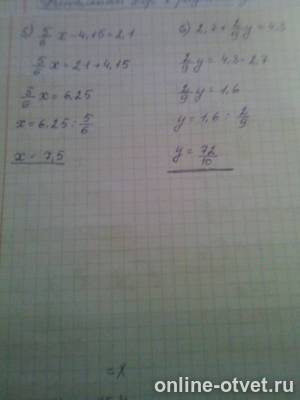 5) 5/6 x - 4,15 = 2,1
5/6 x = 2,1 + 4,15
5/6 x = 6,25
x = 6,25 : 5/6
x = 7,5
6) 2,7 + 2/9 y = 4,3
2/9 y = 4,3 - 2,7
2/9 y = 1,6
y = 1,6 : 2/9
y = 72/10
= x
online-otvet.ru